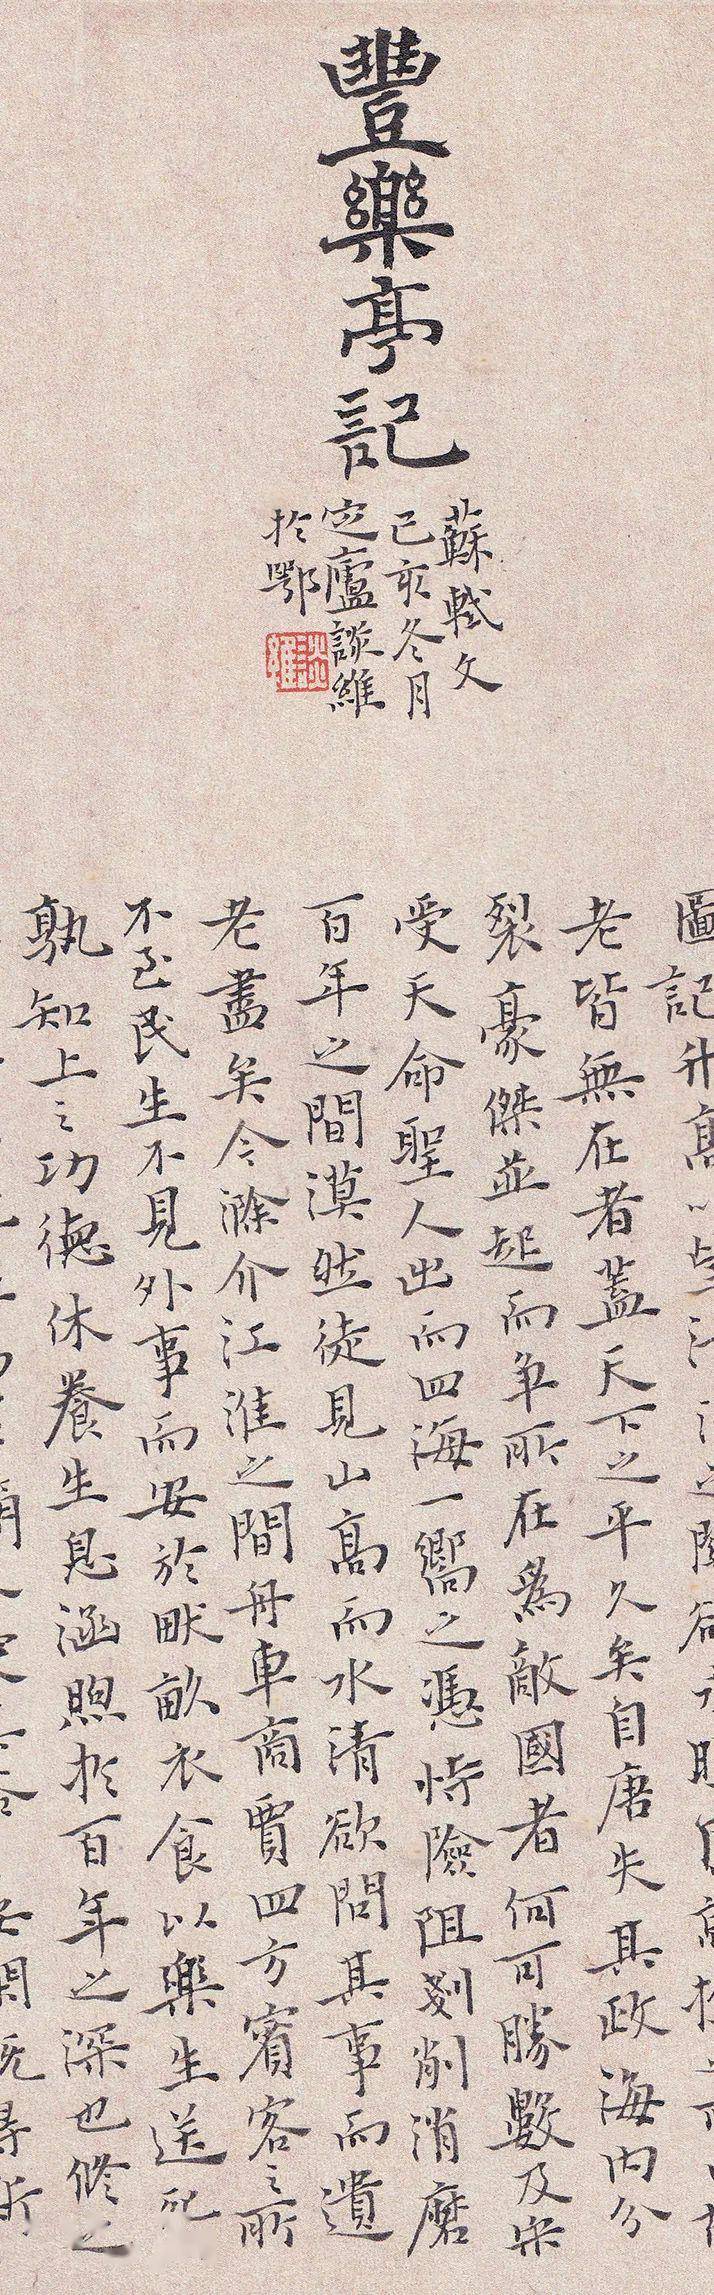 豐樂亭記
蘇軾文
己亥冬月
定廬談維
於鄂
圖記升高
老皆無在者蓋天下之平久矣自唐失其政海内分
裂豪傑並起而争所在為敵國者何可勝數及宋
受天命聖人出而四海一嚮之憑恃險阻剗削消磨
百年之間漠然徒見山高而水清欲問其事而遺
老盡矣今滁介江淮之間舟車商賈四方賓客之所
不至民生不見外事而安於畎畝衣食以樂生送死
孰知上之功德休養生息涵煦於百年之深也修之